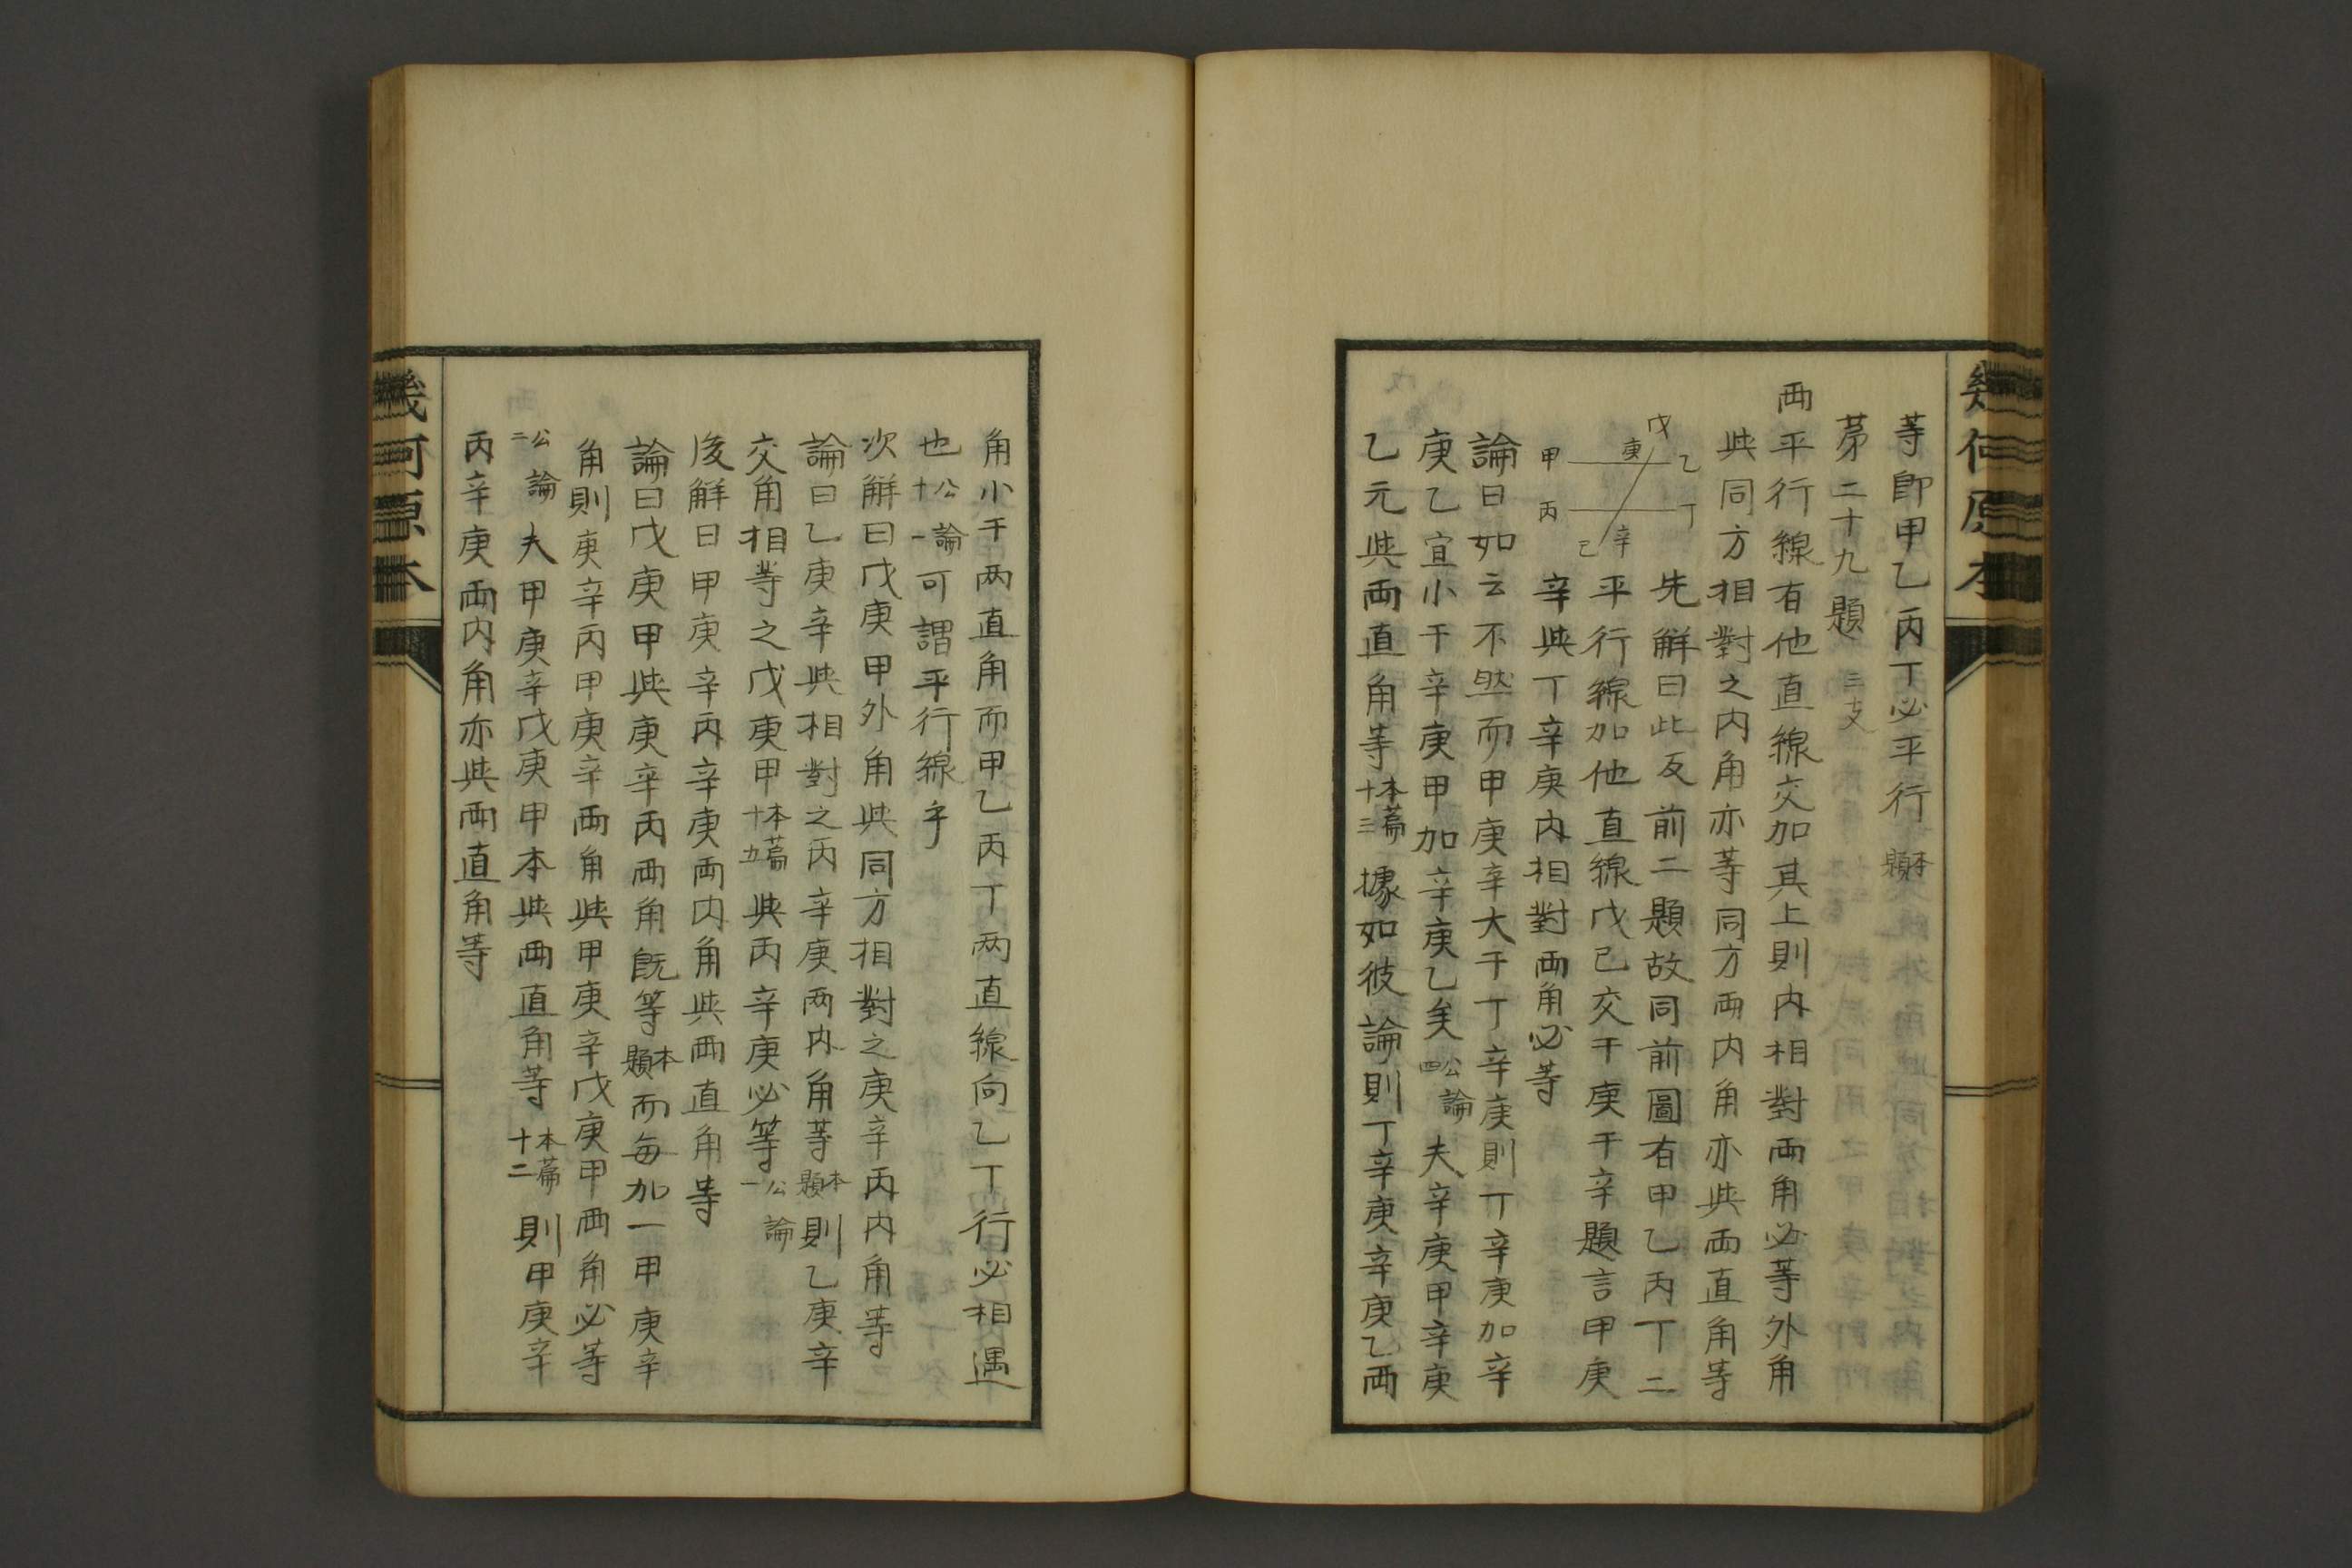 幾何原本
等卽甲乙丙丁必平行本題
第二十九題 三支
兩平行線有他直線交加其上則內相對兩角必等外角
與同方相對之內角亦等同方兩內角亦與兩直角等
戊
庚
甲 乙
丙 丁
辛
己
先解曰此反前二題故同前圖有甲乙丙丁二
平行線加他直線戊己交于庚于辛題言甲庚
辛與丁辛庚內相對兩角必等
論曰如云不然而甲庚辛大于丁辛庚則丁辛庚加辛
庚乙宜小于辛庚甲加辛庚乙矣公論四夫辛庚甲辛庚
乙元與兩直角等本篇十三據如彼論則丁辛庚辛庚乙兩
角小于两直角而甲乙丙丁两直線向乙丁行必相遇
也公論十一可謂平行線乎
次解曰戊庚甲外角與同方相對之庚辛丙內角等
論曰乙庚辛與相對之丙辛庚两內角等本題則乙庚辛
交角相等之戊庚甲本篇十五與丙辛庚必等公論一
後解曰甲庚辛丙辛庚兩內角與兩直角等
論曰戊庚甲與庚辛丙兩角旣等本題而每加一甲庚辛
角則庚辛丙甲庚辛兩角與甲庚辛戊庚甲兩角必等
公論二夫甲庚辛戊庚甲本與兩直角等本篇十二則甲庚辛
丙辛庚兩內角亦與兩直角等
幾何原本